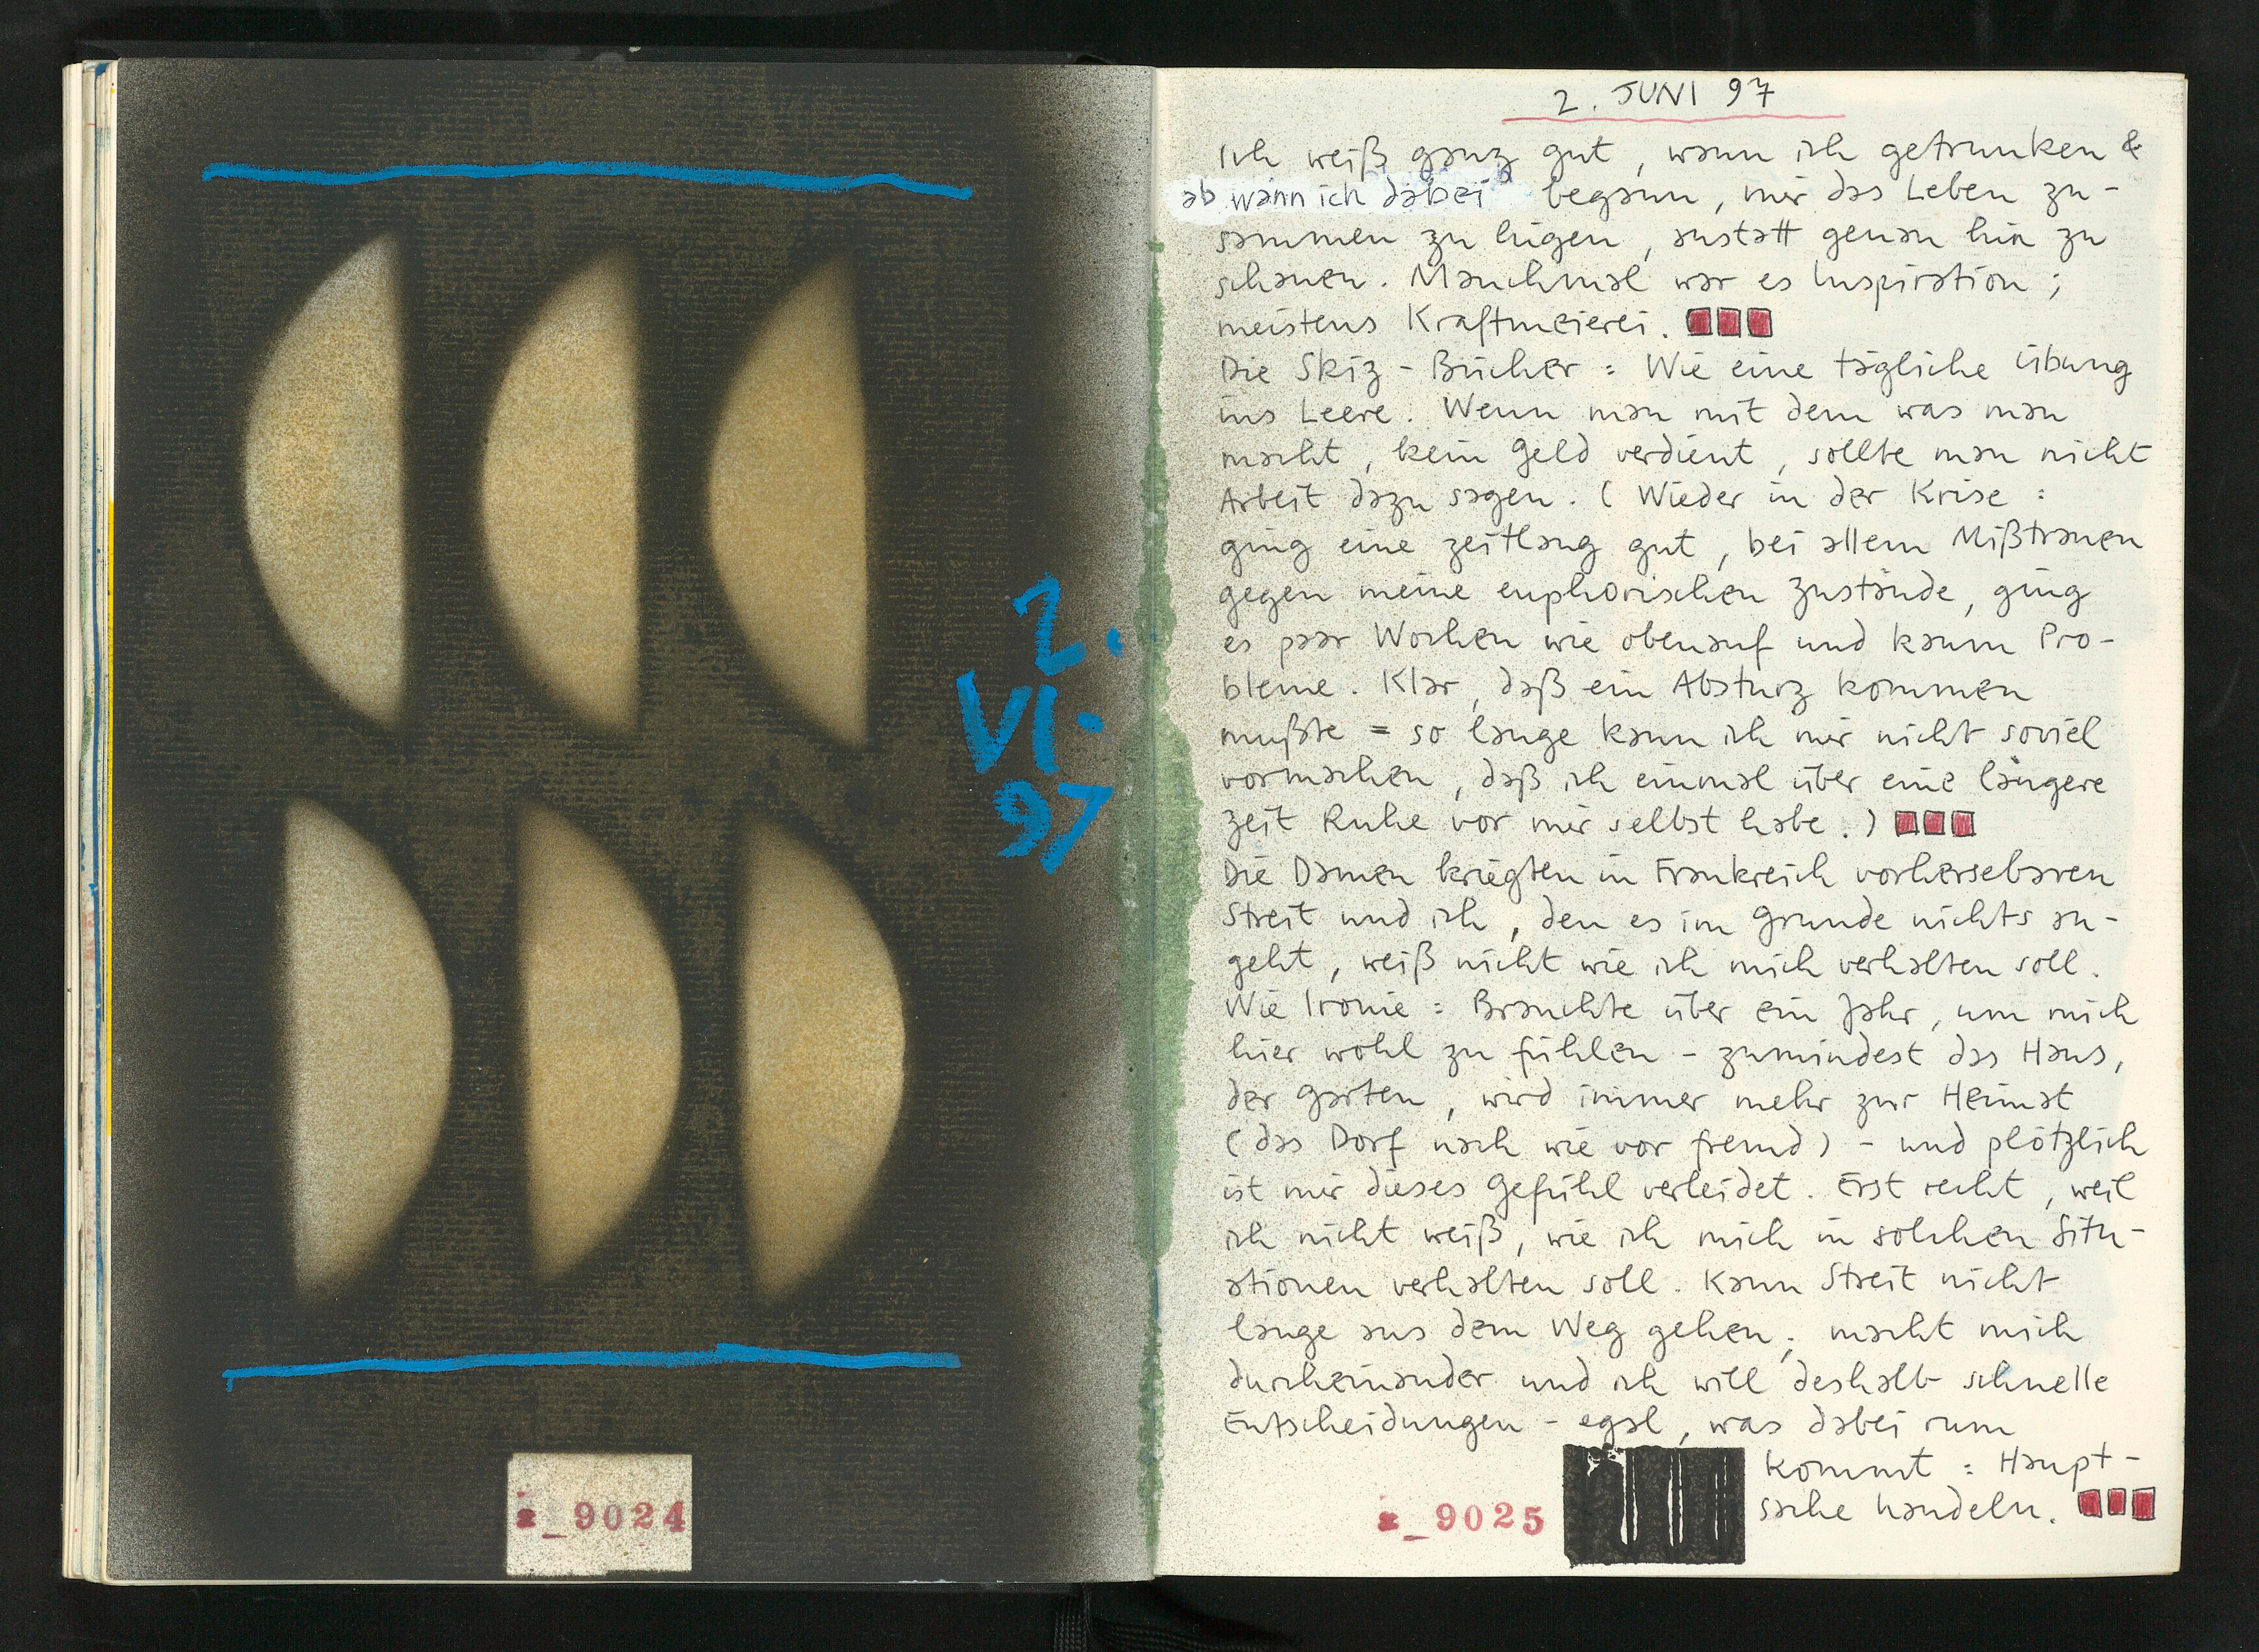 2.
VI.
97
z_9024
2. JUNI 97
Ich weiß ganz gut, wann ich getrunken &
ab wann ich dabei begann, mir das Leben zu-
sammen zu lügen, anstatt genau hin zu
schauen. Manchmal war es Inspiration;
meistens Kraftmeierei.
Die Skiz-Bücher: Wie eine tägliche Übung
ins Leere. Wenn man mit dem was man
macht, kein Geld verdient, sollte man nicht
Arbeit dazu sagen. (Wieder in der Krise:
ging eine zeitlang gut, bei allem Mißtrauen
gegen meine euphorischen Zustände, ging
es paar Wochen wie obenauf und kaum Pro-
bleme. Klar, daß ein Absturz kommen
mußte = so lange kann ich mir nicht soviel
vormachen, daß ich einmal über eine längere
Zeit Ruhe vor mir selbst habe.)
Die Damen kriegten in Frankreich vorhersebaren
Streit und ich, den es im Grunde nichts an-
geht, weiß nicht wie ich mich verhalten soll.
Wie Ironie: Brauchte über ein Jahr, um mich
hier wohl zu fühlen - zumindest das Haus,
der Garten, wird immer mehr zur Heimat
(das Dorf nach wie vor fremd) - und plötzlich
ist mir dieses Gefühl verleidet. Erst recht, weil
ich nicht weiß, wie ich mich in solchen Situ-
ationen verhalten soll. Kann Streit nicht
lange aus dem Weg gehen; macht mich
durcheinander und ich will deshalb schnelle
Entscheidungen - egal, was dabei rum
kommt: Haupt-
sache handeln.
z_9025